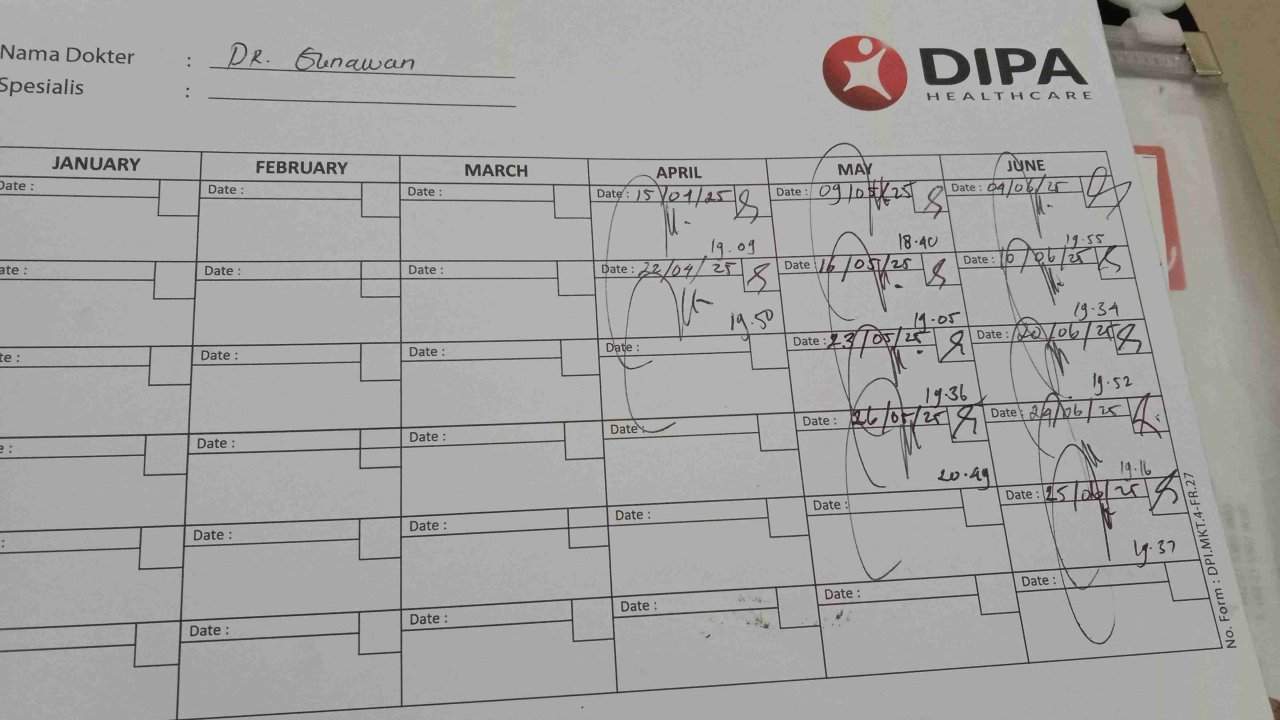 Nama Dokter : DR. Gunawan
Spesialis :
DIPA
HEALTHCARE
JANUARY FEBRUARY MARCH APRIL MAY JUNE
Date : Date : Date : Date : 15/04/25 Date : 09/05/25 Date : 04/06/25
19.09 18.40 19.55
Date : Date : Date : 22/04/25 Date : 16/05/25 Date : 10/06/25
19.50 19.05 19.34
Date : Date : Date : Date : 23/05/25 Date : 20/06/25
19.36 19.52
Date : Date : Date : Date : 26/05/25 Date : 24/06/25
20.49 19.16
Date : Date : Date : Date : Date : 25/06/25
19.37
Date : Date : Date : Date : Date :
No. Form : DPI.MKT.4-FR.27